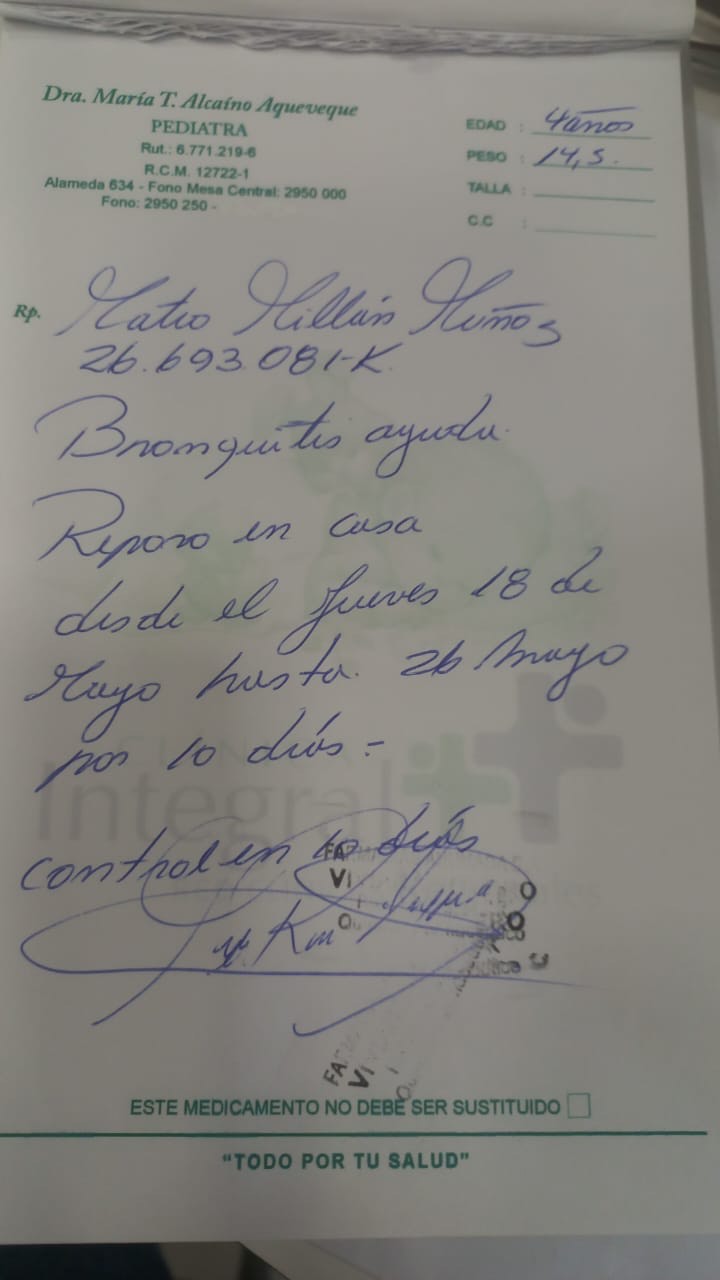 Dra. María T. Alcaíno Aqueveque
PEDIATRA
Rut.: 6.771.219-6
R.C.M. 12722-1
Alameda 634 - Fono Mesa Central: 2950 000
Fono: 2950 250 -
EDAD : 4 años
PESO : 14,5.
TALLA :
C.C :
Rp.
Mateo Millán Muñoz
26.693.081-K.
Bronquitis aguda.
Reposo en casa
desde el Jueves 18 de
Mayo hasta 26 Mayo
por 10 días -
Integral
control en 10 días
FA
VI
FA
VI
ESTE MEDICAMENTO NO DEBE SER SUSTITUIDO
"TODO POR TU SALUD"